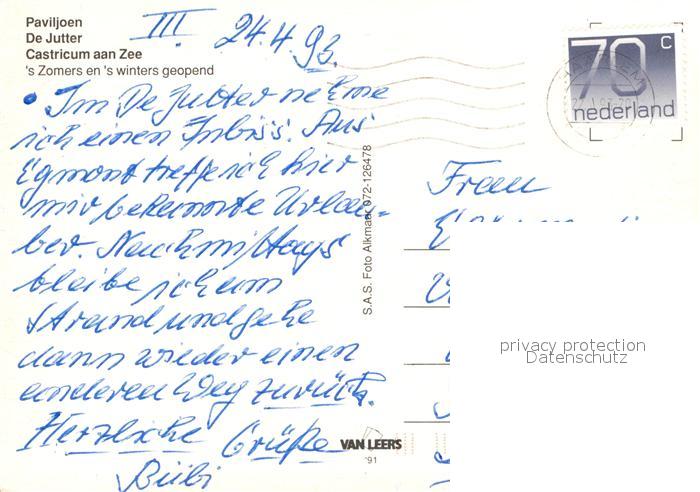 Paviljoen
De Jutter
Castricum aan Zee
's Zomers en 's winters geopend
III. 24.4.93.
• Im De Jutter nehme
ich einen Imbiss. Aus
Egmont treffe ich hier
mir bekannte Urlau-
ber. Nachmittags
bleibe ich am
Strand und gehe
dann wieder einen
anderen Weg zurück.
Herzliche Grüße
Bübi
S.A.S. Foto Alkmaar 072-126478
VAN LEERS
'91
70 c
nederland
Frau
privacy protection
Datenschutz